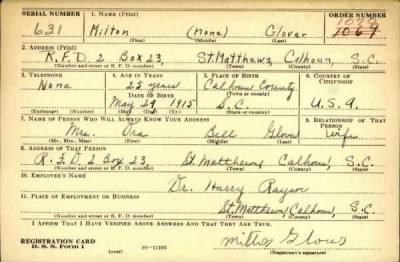 SERIAL NUMBER 1. NAME (Print) ORDER NUMBER
1078
631 Milton (None) Glover 1069
(First) (Middle) (Last)
2. ADDRESS (Print)
R.F.D 2 Box 23, St. Matthews, Calhoun, S.C.
(Number and street or R. F. D. number) (Town) (County) (State)
3. TELEPHONE 4. AGE IN YEARS 5. PLACE OF BIRTH 6. COUNTRY OF CITIZENSHIP
None 25 years Calhoun County
DATE OF BIRTH (Town or county)
May 29, 1915 S.C. U.S.A
(Exchange) (Number) (Mo.) (Day) (Yr.) (State or country)
7. NAME OF PERSON WHO WILL ALWAYS KNOW YOUR ADDRESS 8. RELATIONSHIP OF THAT PERSON
Mrs. Ora Bell Glover Wife
(Mr., Mrs., Miss) (First) (Middle) (Last)
9. ADDRESS OF THAT PERSON
R.F.D 2 Box 23, St. Matthews, Calhoun, S.C.
(Number and street or R. F. D. number) (Town) (County) (State)
10. EMPLOYER'S NAME
Dr. Harry
11. PLACE OF EMPLOYMENT OR BUSINESS
St. Matthews, Calhoun, S.C.
(Number and street or R. F. D. number) (Town) (County) (State)
I AFFIRM THAT I HAVE VERIFIED ABOVE ANSWERS AND THAT THEY ARE TRUE.
REGISTRATION CARD
D. S. S. Form 1 (over) 16—17105 (Registrant's signature)